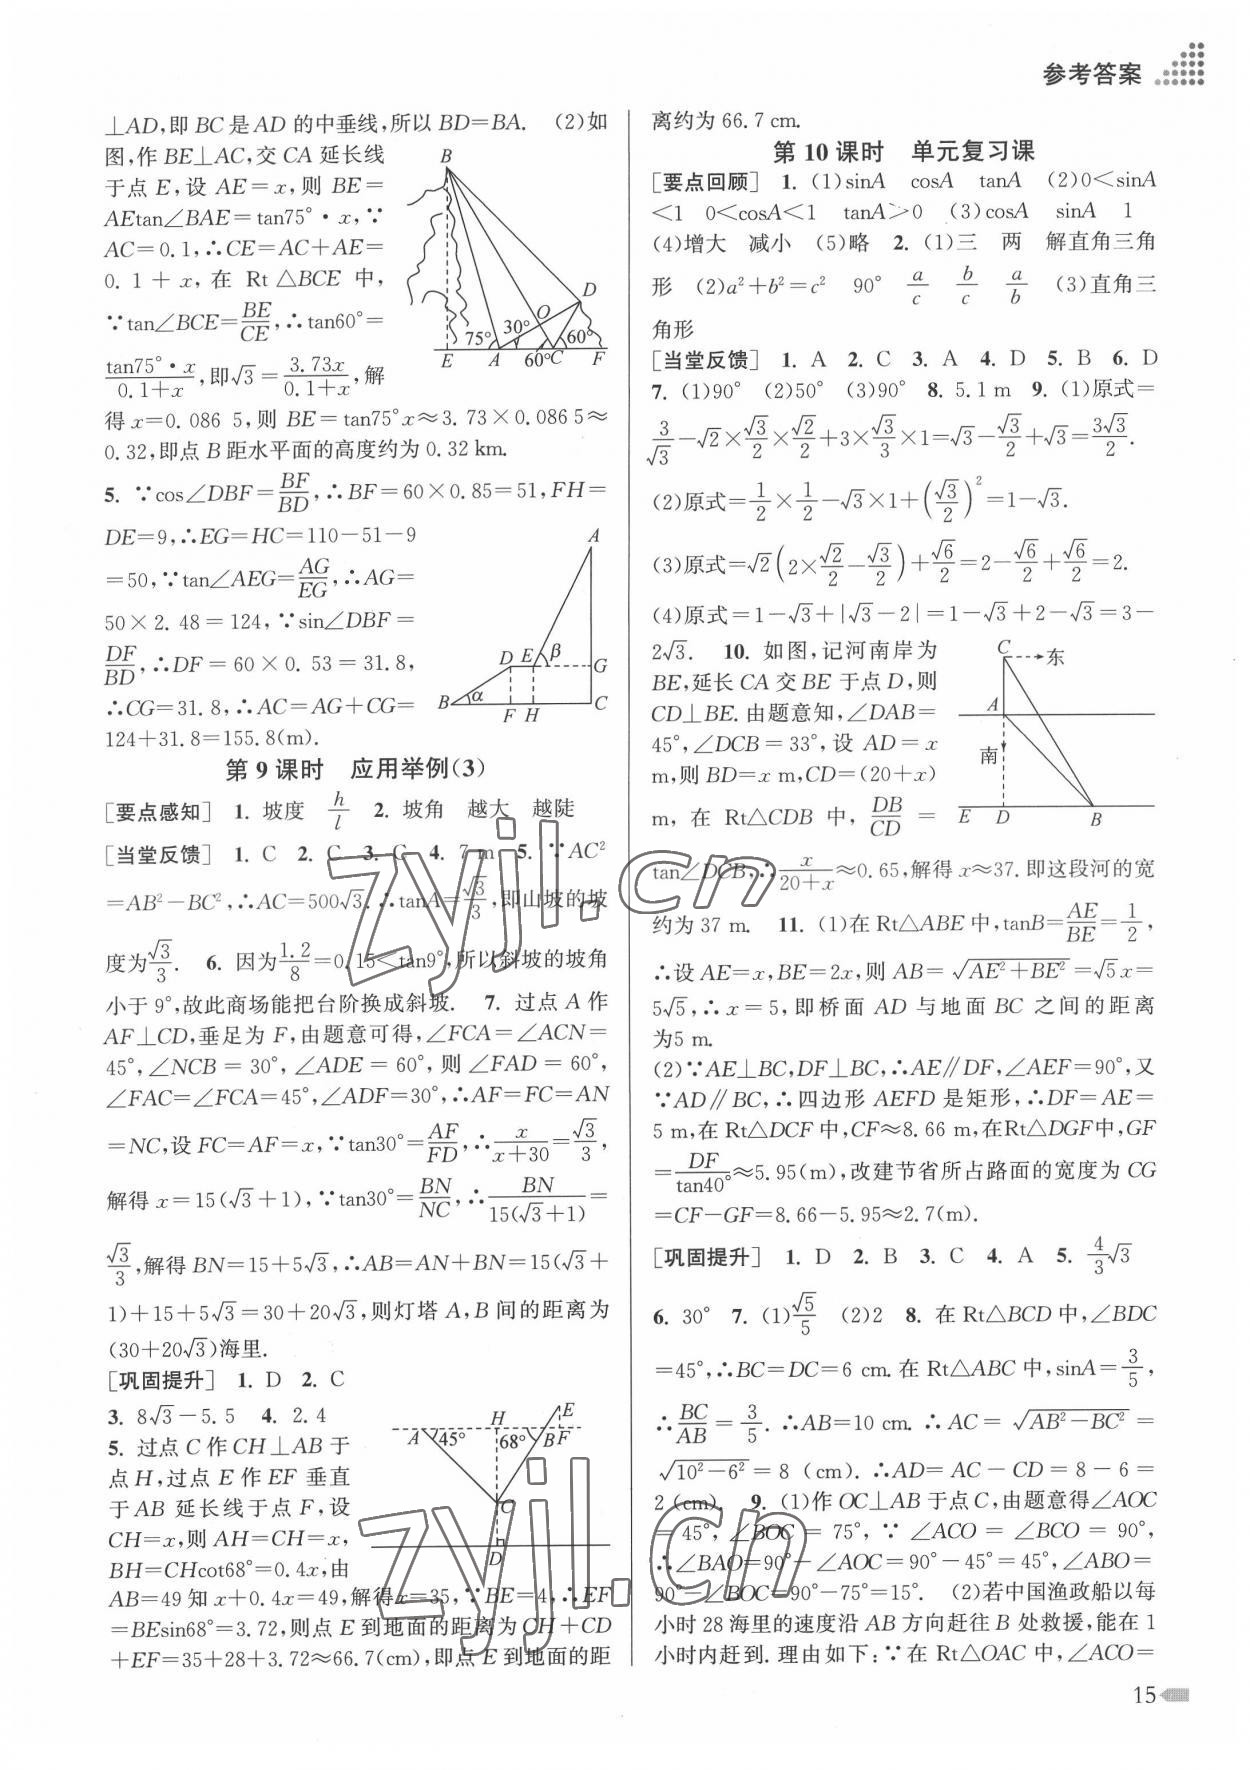 参考答案
⊥AD,即 BC 是 AD 的中垂线,所以 BD=BA. (2)如
图,作 BE⊥AC,交 CA 延长线
于点 E,设 AE=x,则 BE=
AEtan∠BAE=tan75°·x,∵
AC=0.1,∴CE=AC+AE=
0.1+x,在 Rt△BCE 中,
∵tan∠BCE=BE/CE,∴tan60°=
tan75°·x/(0.1+x),即√3=3.73x/(0.1+x),解
得 x=0.086 5,则 BE=tan75°x≈3.73×0.086 5≈
0.32,即点 B 距水平面的高度约为 0.32 km.
B
D
O
75°
30°
60°
60°
E
A
C
F
5. ∵cos∠DBF=BF/BD,∴BF=60×0.85=51,FH=
DE=9,∴EG=HC=110-51-9
=50,∵tan∠AEG=AG/EG,∴AG=
50×2.48=124,∵sin∠DBF=
DF/BD,∴DF=60×0.53=31.8,
∴CG=31.8,∴AC=AG+CG=
124+31.8=155.8(m).
A
D
E
β
G
B
α
F
H
C
第 9 课时 应用举例(3)
[要点感知] 1. 坡度 h/l 2. 坡角 越大 越陡
[当堂反馈] 1. C 2. C 3. C 4. 7 m 5. ∵AC²
=AB²-BC²,∴AC=500√3.∴tanA=√3/3,即山坡的坡
度为√3/3. 6. 因为1.2/8=0.15<tan9°,所以斜坡的坡角
小于 9°,故此商场能把台阶换成斜坡. 7. 过点 A 作
AF⊥CD,垂足为 F,由题意可得,∠FCA=∠ACN=
45°,∠NCB=30°,∠ADE=60°,则∠FAD=60°,
∠FAC=∠FCA=45°,∠ADF=30°,∴AF=FC=AN
=NC,设 FC=AF=x,∵tan30°=AF/FD,∴x/(x+30)=√3/3,
解得 x=15(√3+1),∵tan30°=BN/NC,∴BN/(15(√3+1))=
√3/3,解得 BN=15+5√3,∴AB=AN+BN=15(√3+
1)+15+5√3=30+20√3,则灯塔 A,B 间的距离为
(30+20√3)海里.
[巩固提升] 1. D 2. C
3. 8√3-5.5 4. 2.4
5. 过点 C 作 CH⊥AB 于
点 H,过点 E 作 EF 垂直
于 AB 延长线于点 F,设
CH=x,则 AH=CH=x,
BH=CHcot68°=0.4x,由
AB=49 知 x+0.4x=49,解得 x=35,∵BE=4,∴EF
=BEsin68°=3.72,则点 E 到地面的距离为 CH+CD
+EF=35+28+3.72≈66.7(cm),即点 E 到地面的距
A
45°
H
68°
B
F
E
C
D
离约为 66.7 cm.
第 10 课时 单元复习课
[要点回顾] 1. (1)sinA cosA tanA (2)0<sinA
<1 0<cosA<1 tanA>0 (3)cosA sinA 1
(4)增大 减小 (5)略 2. (1)三 两 解直角三角
形 (2)a²+b²=c² 90° a/c b/c a/b (3)直角三
角形
[当堂反馈] 1. A 2. C 3. A 4. D 5. B 6. D
7. (1)90° (2)50° (3)90° 8. 5.1 m 9. (1)原式=
3/√3-√2×√3/2×√2/2+3×√3/3×1=√3-√3/2+√3=3√3/2.
(2)原式=1/2×1/2-√3×1+(√3/2)²=1-√3.
(3)原式=√2(2×√2/2-√3/2)+√6/2=2-√6/2+√6/2=2.
(4)原式=1-√3+|√3-2|=1-√3+2-√3=3-
2√3. 10. 如图,记河南岸为
BE,延长 CA 交 BE 于点 D,则
CD⊥BE.由题意知,∠DAB=
45°,∠DCB=33°,设 AD=x
m,则 BD=x m,CD=(20+x)
m,在 Rt△CDB 中,DB/CD=
tan∠DCB,∴x/(20+x)≈0.65,解得 x≈37.即这段河的宽
约为 37 m. 11. (1)在 Rt△ABE 中,tanB=AE/BE=1/2,
∴设 AE=x,BE=2x,则 AB=√(AE²+BE²)=√5x=
5√5,∴x=5,即桥面 AD 与地面 BC 之间的距离
为5 m.
C
东
A
南
E
D
B
(2)∵AE⊥BC,DF⊥BC,∴AE∥DF,∠AEF=90°,又
∵AD∥BC,∴四边形 AEFD 是矩形,∴DF=AE=
5 m,在 Rt△DCF 中,CF≈8.66 m,在Rt△DGF中,GF
=DF/tan40°≈5.95(m),改建节省所占路面的宽度为 CG
=CF-GF=8.66-5.95≈2.7(m).
[巩固提升] 1. D 2. B 3. C 4. A 5. 4/3√3
6. 30° 7. (1)√5/5 (2)2 8. 在 Rt△BCD 中,∠BDC
=45°,∴BC=DC=6 cm.在 Rt△ABC 中,sinA=3/5,
∴BC/AB=3/5.∴AB=10 cm.∴AC=√(AB²-BC²)=
√(10²-6²)=8 (cm).∴AD=AC-CD=8-6=
2 (cm). 9. (1)作 OC⊥AB 于点 C,由题意得∠AOC
=45°,∠BOC=75°,∵∠ACO=∠BCO=90°,
∴∠BAO=90°-∠AOC=90°-45°=45°,∠ABO=
90°-∠BOC=90°-75°=15°. (2)若中国渔政船以每
小时 28 海里的速度沿 AB 方向赶往 B 处救援,能在 1
小时内赶到.理由如下:∵在 Rt△OAC 中,∠ACO=
15
zyjl.cn
zyjl.cn